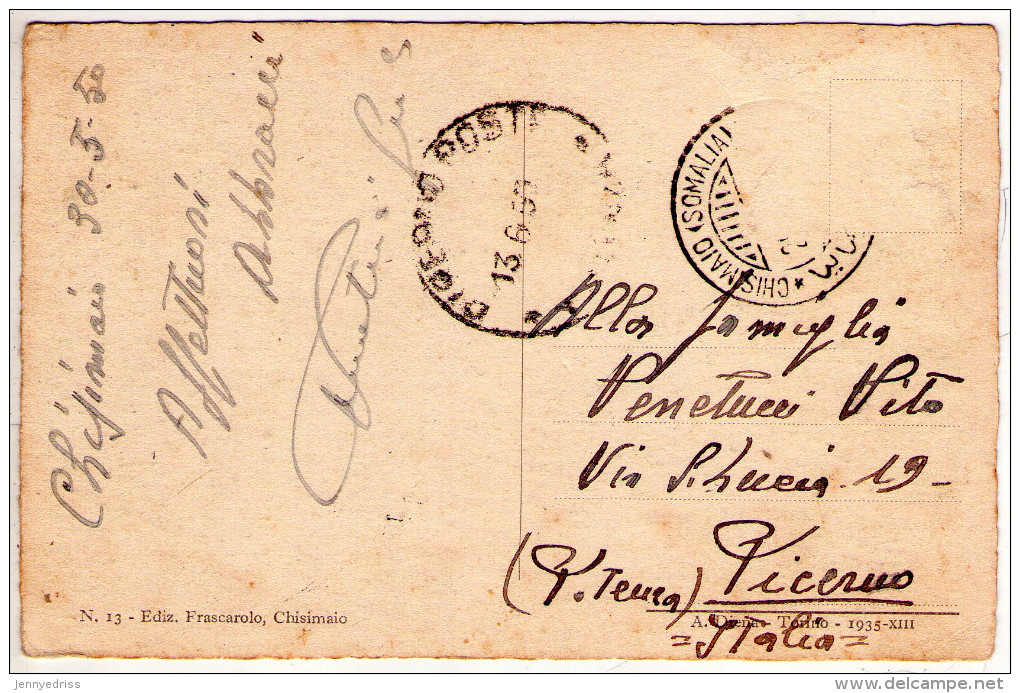 Chisimaio 30-5-50
Affettuosi
abbracci
POSTA
13.6.50
CHISIMAIO (SOMALIA)
Alla famiglia
Venetucci Vito
Via S. Lucia 19-
(P. Tenza) Picerno
=Italia=
N. 13 - Ediz. Frascarolo, Chisimaio
A. Diena - Torino - 1935-XIII
jennyedriss
delcampe.net